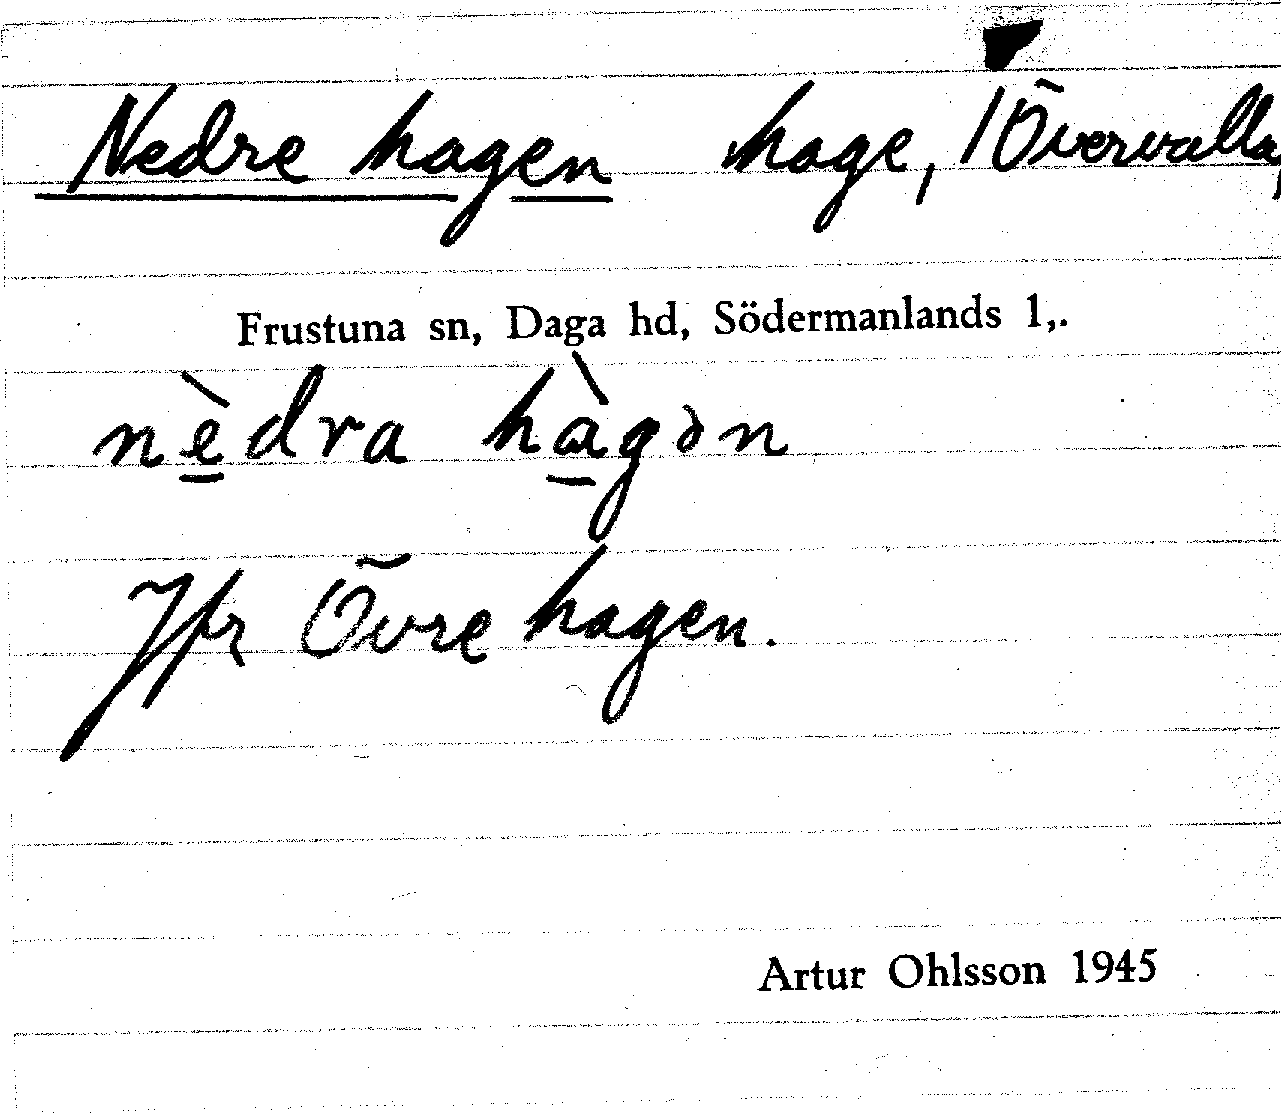 Nedre hagen hage, 1 Övervalla,
Frustuna sn, Daga hd, Södermanlands l,.
nèdra hàgən
Jfr Övre hagen.
Artur Ohlsson 1945